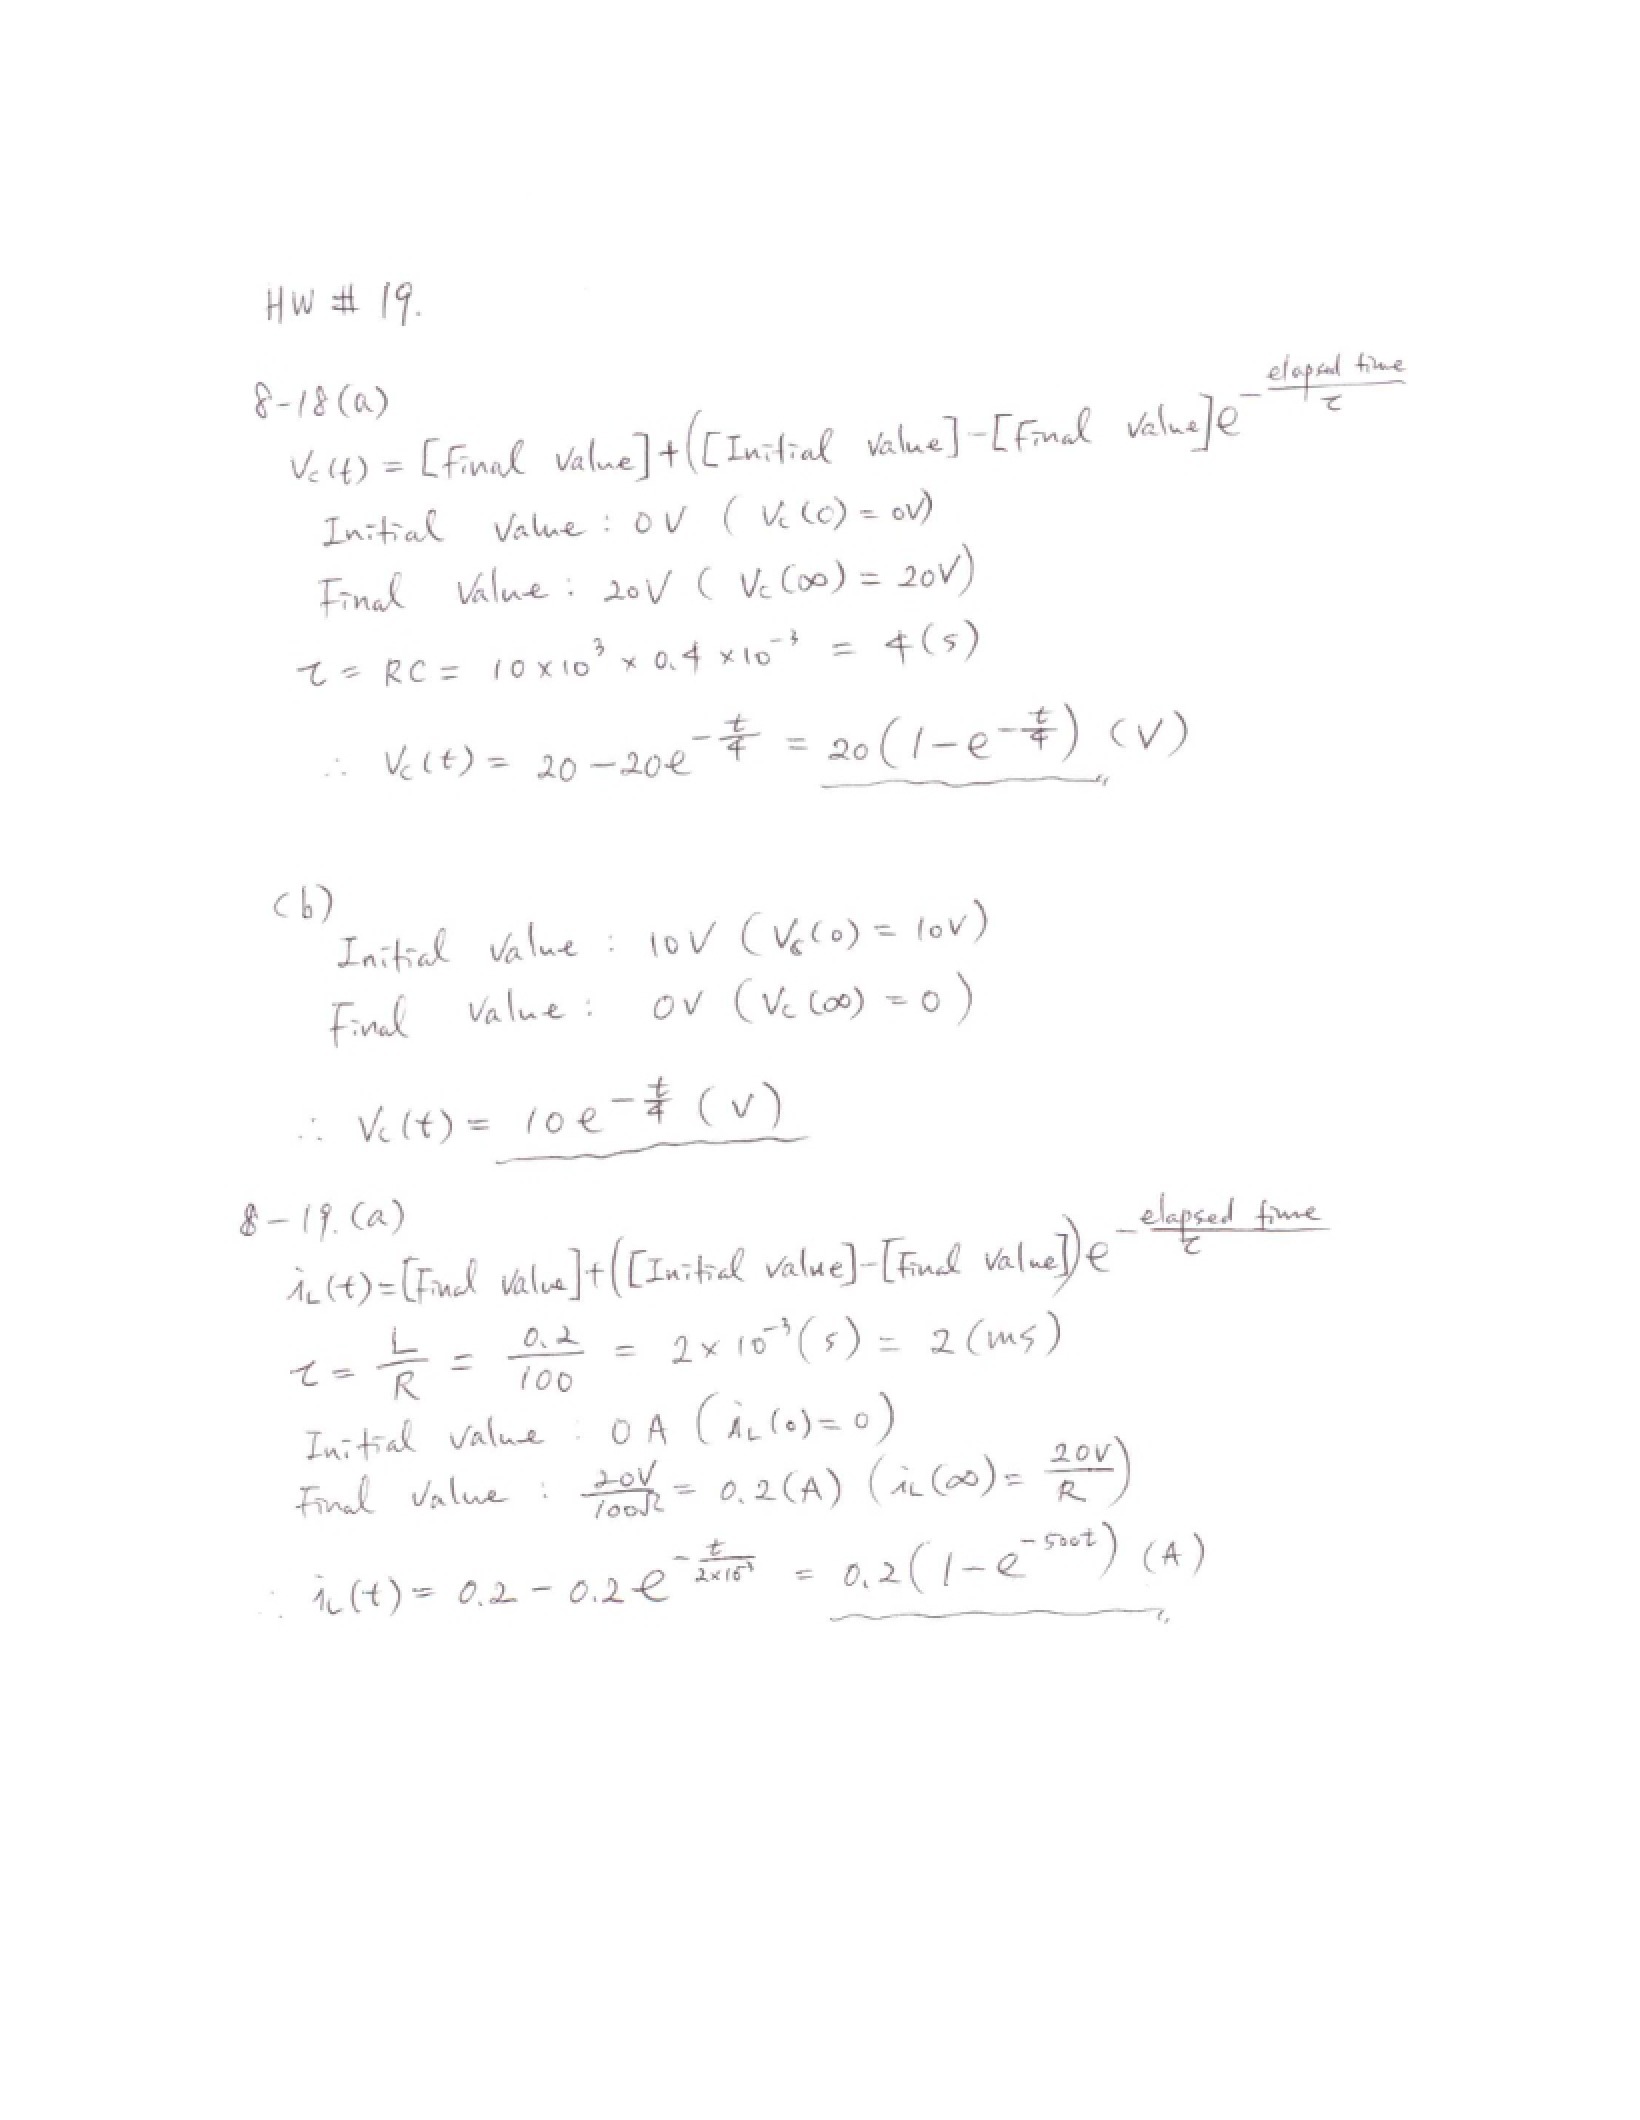 HW # 19.
8-18(a)
Vc(t) = [Final value]+([Initial value]-[Final value]e^{-\frac{elapsed time}{τ}}
Initial value : 0V ( Vc(0) = 0V)
Final value : 20V ( Vc(∞) = 20V)
τ = RC = 10×10^3 × 0.4 ×10^{-3} = 4(s)
∴ Vc(t) = 20 -20e^{-\frac{t}{4}} = 20(1-e^{-\frac{t}{4}}) (V)
(b)
Initial value : 10V (Vc(0) = 10V)
Final value : 0V (Vc(∞) = 0)
∴ Vc(t) = 10e^{-\frac{t}{4}} (V)
8-19.(a)
iL(t)=[Final value]+([Initial value]-[Final value])e^{-\frac{elapsed time}{τ}}
τ = \frac{L}{R} = \frac{0.2}{100} = 2×10^{-3}(s) = 2(ms)
Initial value : 0A (iL(0)=0)
Final value : \frac{20V}{100Ω} = 0.2(A) (iL(∞)= \frac{20V}{R})
∴ iL(t)= 0.2 - 0.2e^{-\frac{t}{2×10^{-3}}} = 0.2(1-e^{-500t}) (A)